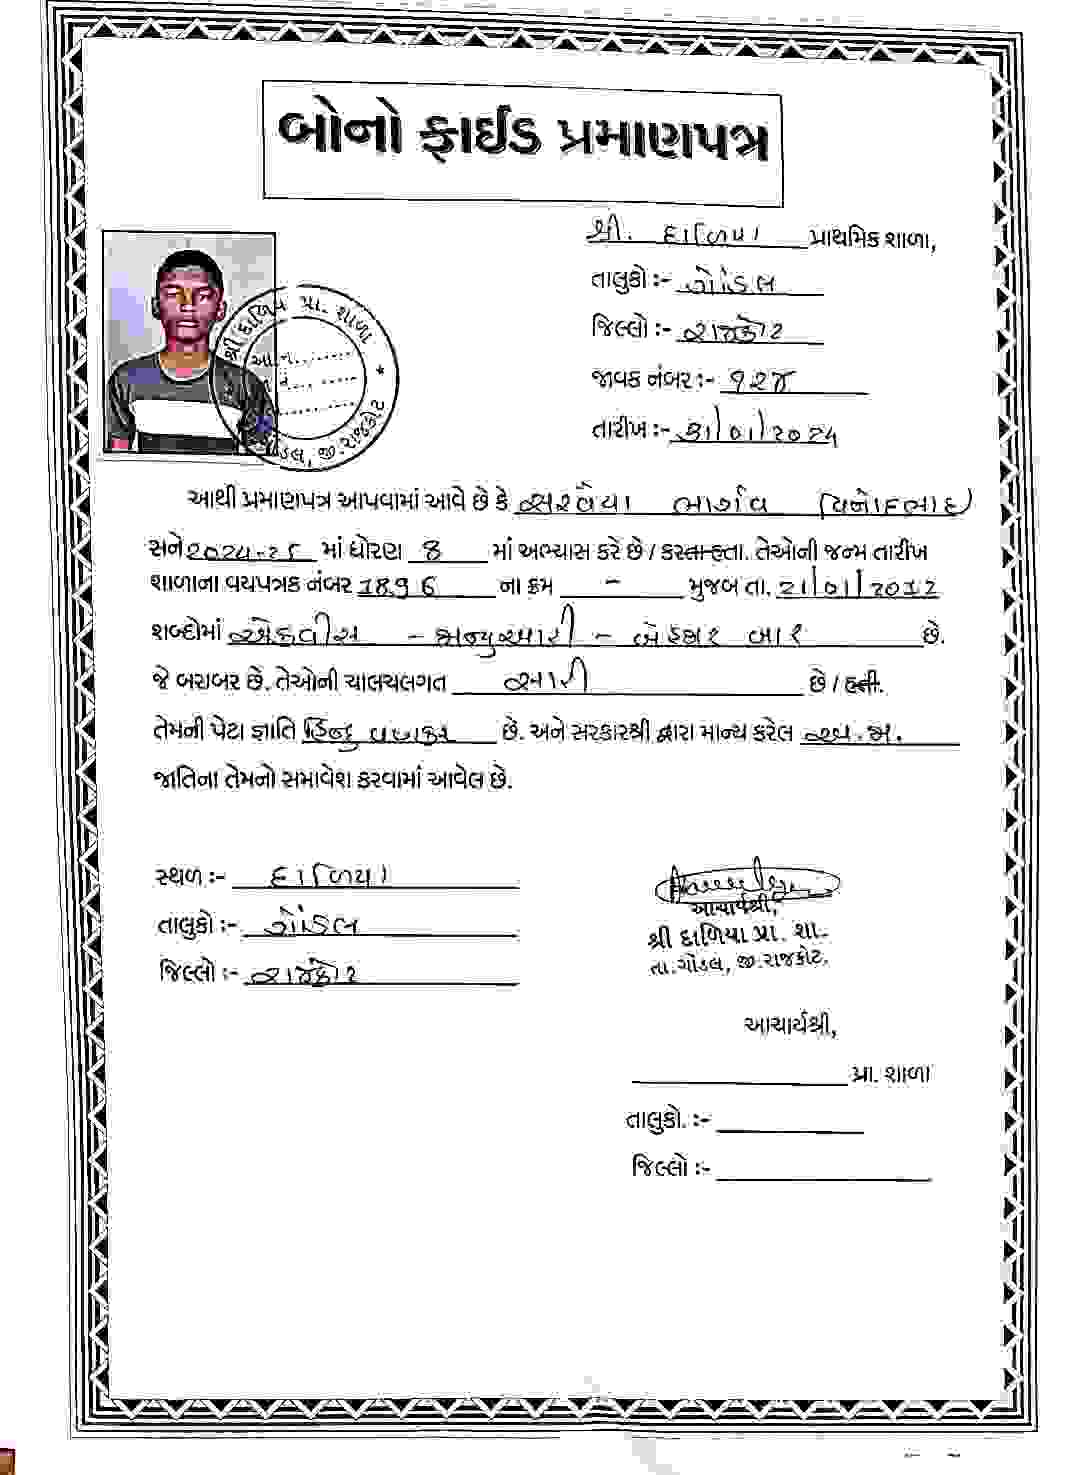 બોનો ફાઈડ પ્રમાણપત્ર
શ્રી. દાળિયા પ્રાથમિક શાળા,
તાલુકો :- ગોંડલ
જિલ્લો :- રાજકોટ
જાવક નંબર :- ૧૨૪
તારીખ :- 31/01/2025
શ્રી દાળિયા પ્રા. શાળા
ગોંડલ, જી.રાજકોટ
આથી પ્રમાણપત્ર આપવામાં આવે છે કે સરવૈયા ભાર્ગવ વિનોદભાઇ
સને ૨૦૨૫-૨૬ માં ધોરણ 8 માં અભ્યાસ કરે છે / કરતા હતા. તેઓની જન્મ તારીખ
શાળાના વયપત્રક નંબર 1896 ના ક્રમ - મુજબ તા. 21/01/2012
શબ્દોમાં એકવીસ - જાન્યુઆરી - બે હજાર બાર છે.
જે બરાબર છે. તેઓની ચાલચલગત સારી છે / હતી.
તેમની પેટા જ્ઞાતિ હિન્દુ વણકર છે. અને સરકારશ્રી દ્વારા માન્ય કરેલ અ.જા.
જાતિના તેમનો સમાવેશ કરવામાં આવેલ છે.
સ્થળ :- દાળિયા
તાલુકો :- ગોંડલ
જિલ્લો :- રાજકોટ
આચાર્યશ્રી,
શ્રી દાળિયા પ્રા. શા.
તા.ગોંડલ, જી.રાજકોટ.
આચાર્યશ્રી,
પ્રા. શાળા
તાલુકો. :-
જિલ્લો :-